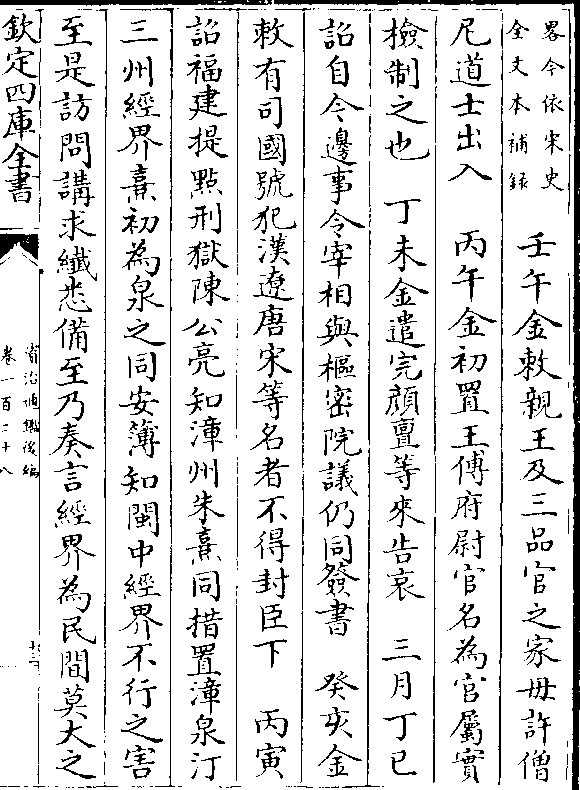 畧今依宋史
全文本補録
壬午金敕親王及三品官之家毋許僧
尼道士出入　丙午金初置王傅府尉官名為官屬實
撿制之也　丁未金遣完顔亶等來告哀　三月丁巳
詔自今邊事令宰相與樞密院議仍同發書　癸亥金
敕有司國號犯漢遼唐宋等名者不得封臣下　丙寅
詔福建提點刑獄陳公亮知漳州朱熹同措置漳泉汀
三州經界熹初為泉之同安簿知閩中經界不行之害
至是訪問講求纎悉備至乃奏言經界為民間莫大之
欽定四庫全書
資治通鑑後編
卷一百二十八